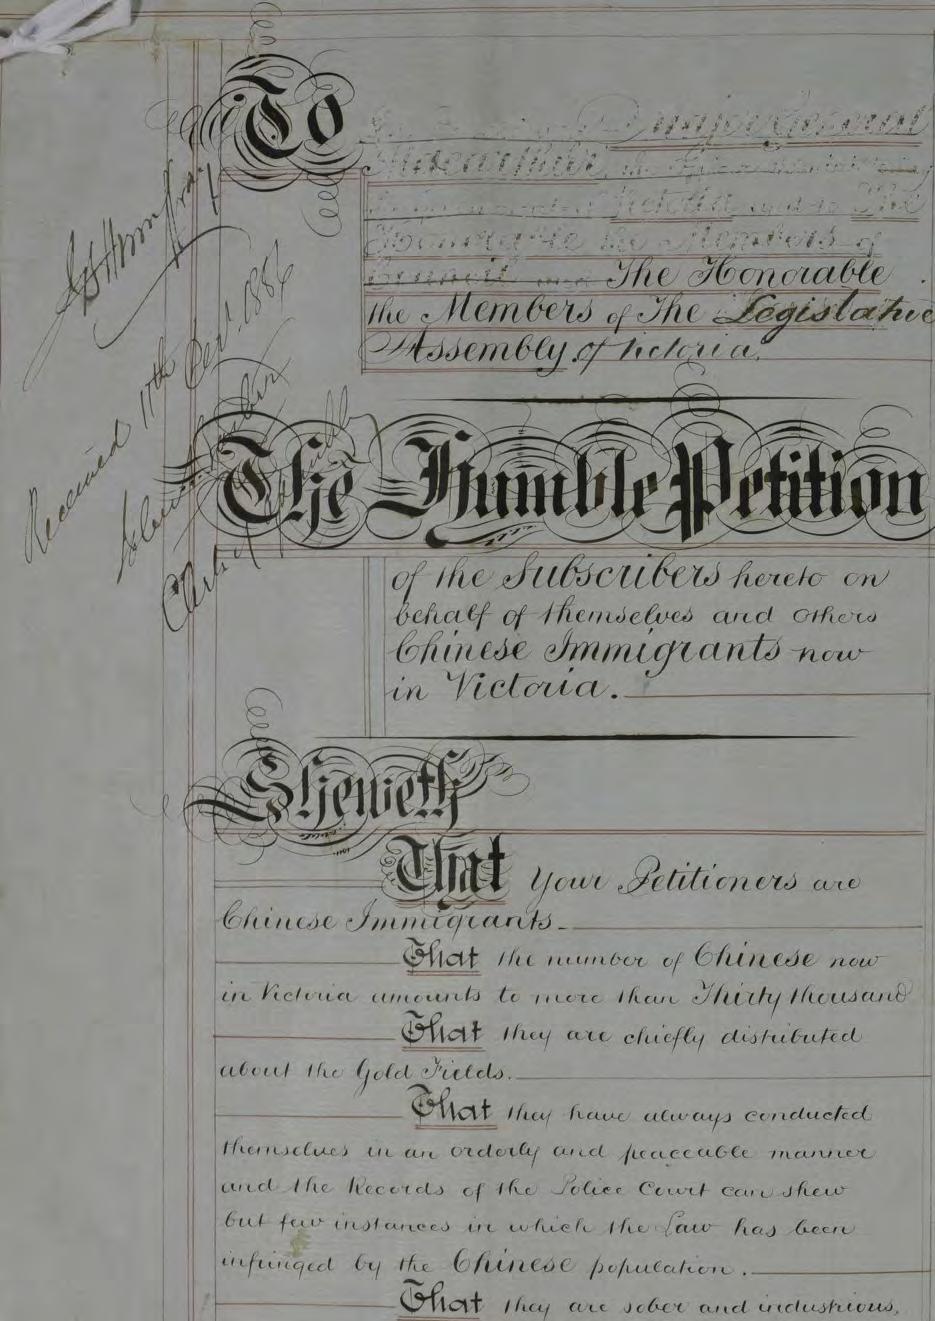 To
Major General
Macarthur
Victoria and to The
Honorable the Members of
Council and The Honorable
the Members of The Legislative
Assembly of Victoria.
The Humble Petition
of the Subscribers hereto on
behalf of themselves and others
Chinese Immigrants now
in Victoria.
Sheweth
That Your Petitioners are
Chinese Immigrants.
That the number of Chinese now
in Victoria amounts to more than Thirty thousand
That they are chiefly distributed
about the Gold Fields.
That they have always conducted
themselves in an orderly and peaceable manner
and the Records of the Police Court can shew
but few instances in which the Law has been
infringed by the Chinese population.
That they are sober and industrious,
Received 11th Decr. 1856
Clerk of